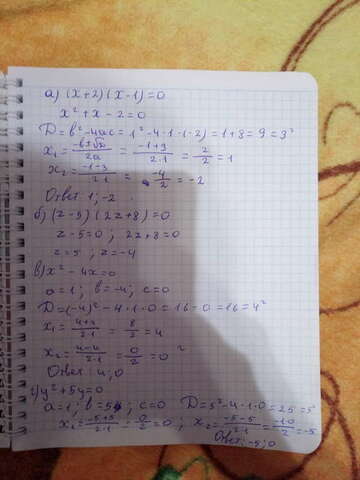 а) (x+2)(x-1)=0
x²+x-2=0
D=b²-4ac=1²-4·1·(-2)=1+8=9=3²
x₁=(-b+√D)/2a=(-1+3)/2·1=2/2=1
x₂=(-1-3)/2·1=-4/2=-2
Ответ 1; -2.
б) (z-5)(2z+8)=0
z-5=0; 2z+8=0
z=5; z=-4
в) x²-4x=0
a=1; b=-4; c=0
D=(-4)²-4·1·0=16-0=16=4²
x₁=(4+4)/2·1=8/2=4
x₂=(4-4)/2·1=0/2=0
Ответ: 4; 0
г) y²+5y=0
a=1; b=5; c=0 D=5²-4·1·0=25=5²
x₁=(-5+5)/2·1=0/2=0; x₂=(-5-5)/2·1=-10/2=-5
Ответ: -5; 0